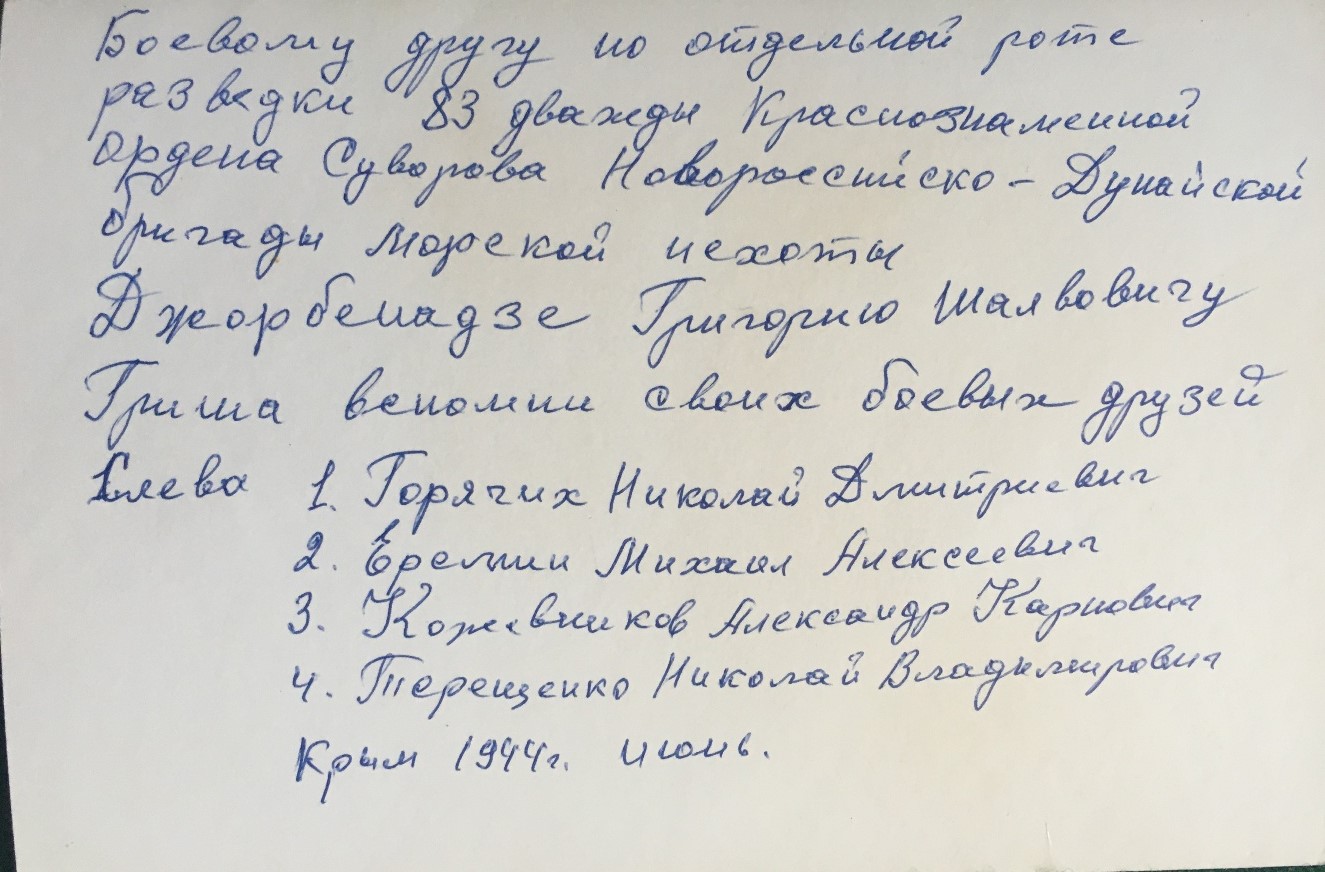 Боевому другу по отдельной роте
разведки 83 дважды Краснознаменной
ордена Суворова Новороссийско - Дунайской
бригады морской пехоты
Джорбенадзе Григорию Шалвовичу
Гриша вспомни своих боевых друзей
Слева 1. Горячих Николай Дмитриевич
2. Еремин Михаил Алексеевич
3. Кожевников Александр Карпович
4. Терещенко Николай Владимирович
Крым 1944г. июнь.